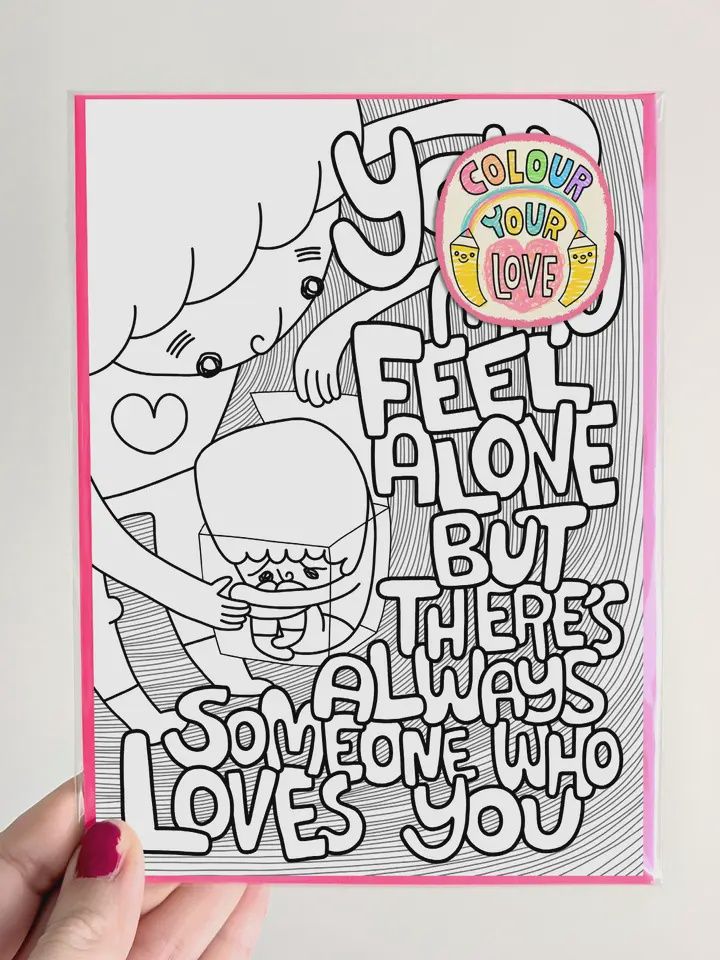 COLOUR
YOUR
LOVE
FEEL
ALONE
BUT
THERE'S
ALWAYS
SOMEONE WHO
LOVES YOU